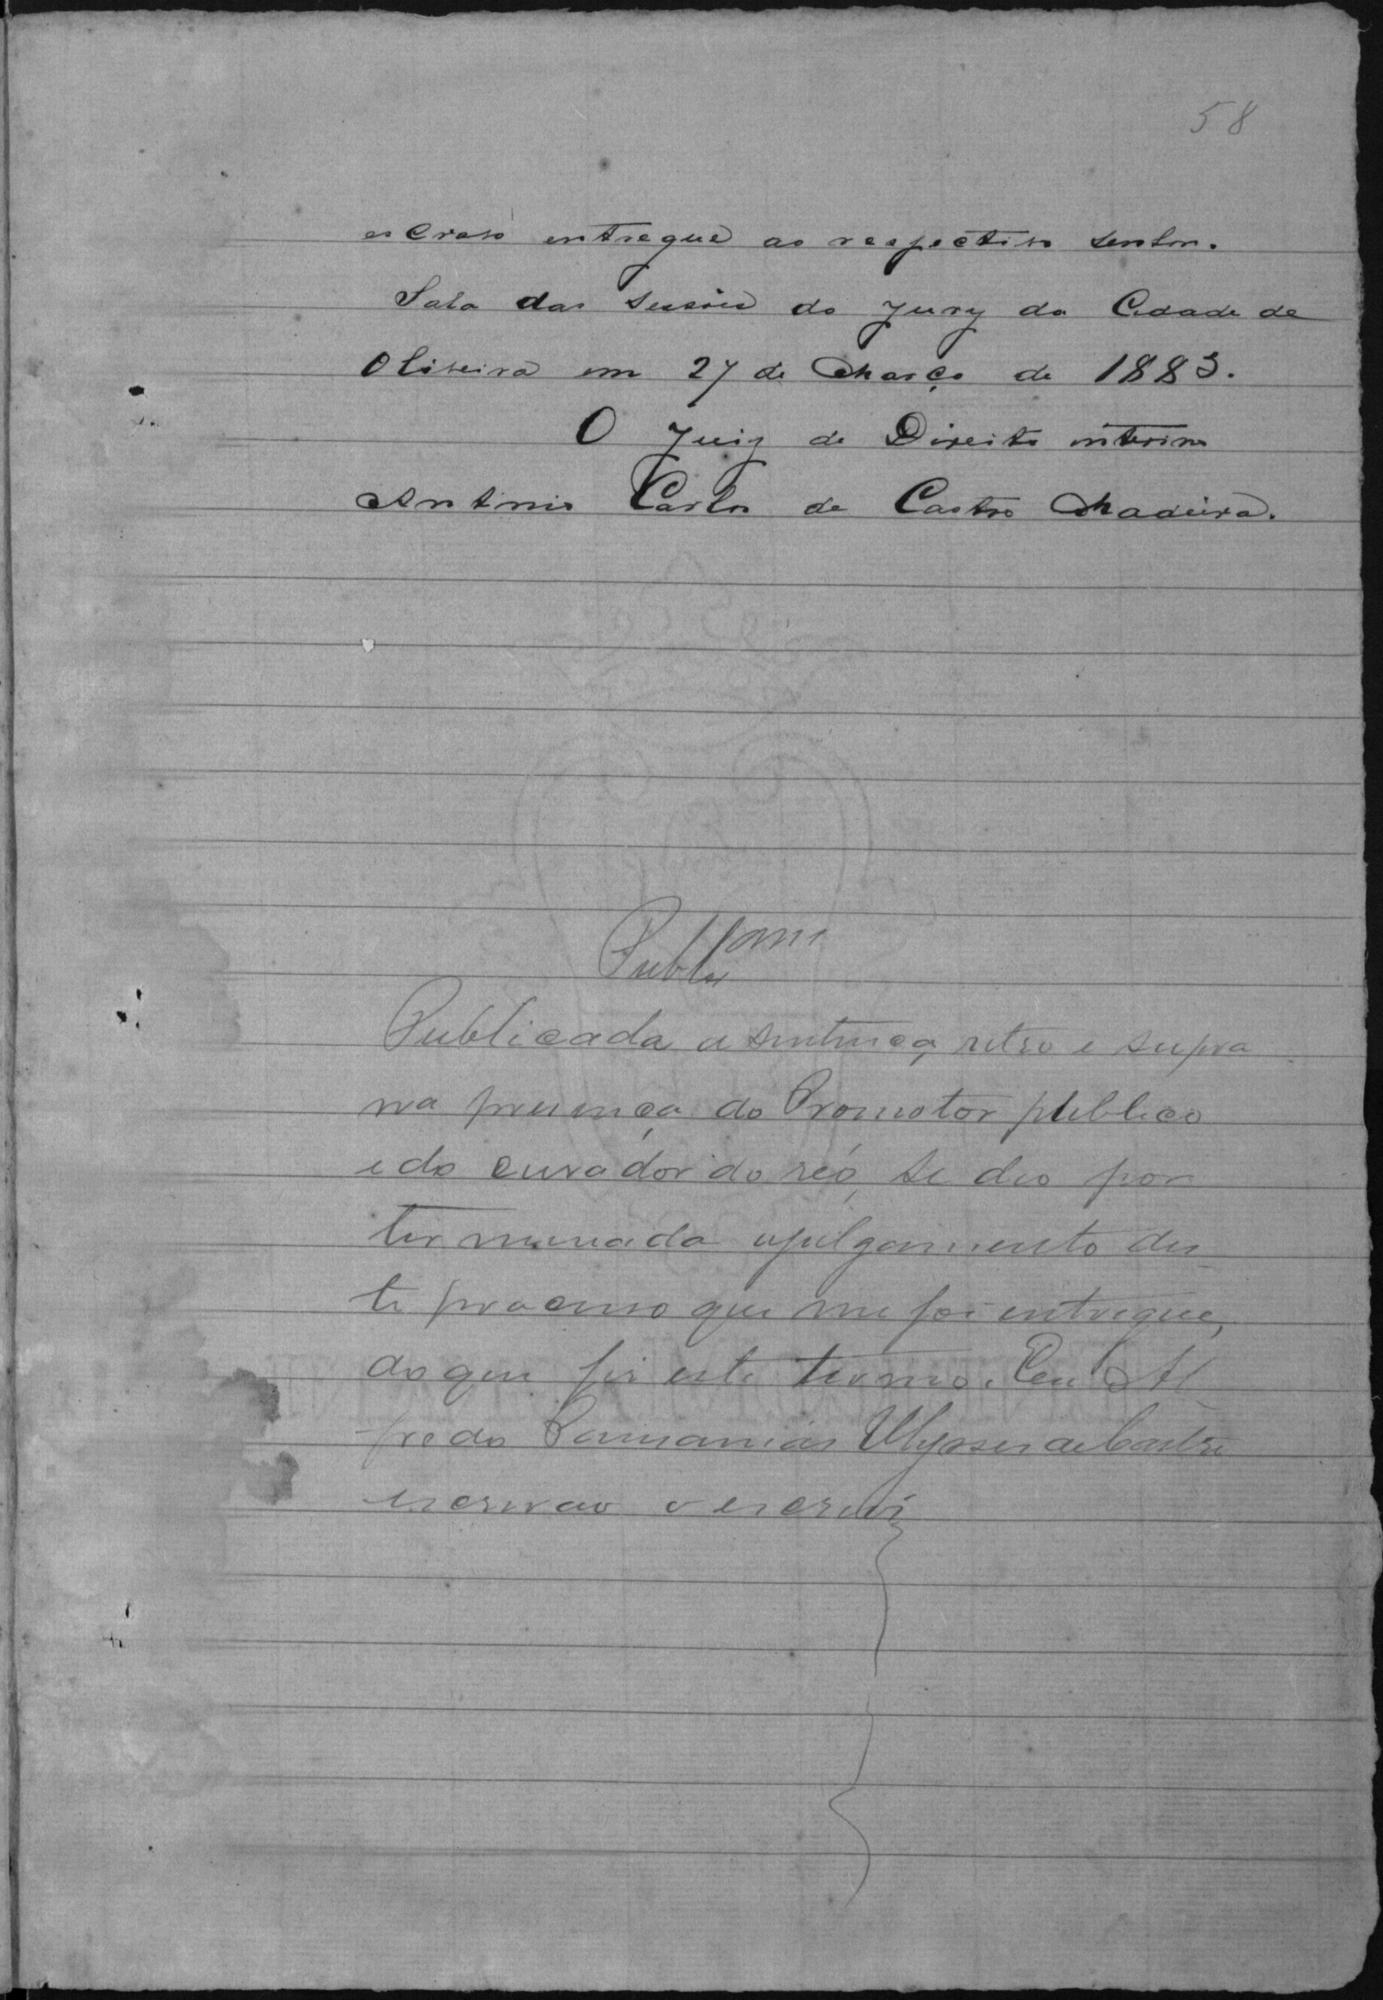 58
escravo entregue ao respectivo senhor.
Sala das sessões do Jury da Cidade de
Oliveira em 27 de Março de 1883.
O Juiz de Direito interino
Antonio Carlos de Castro Madeira.
Publ.cam
Publicada a sentença retro e supra
na presença do Promotor publico
e do curador do réo, se deo por
terminada o julgamento des
te processo que me foi entregue,
do que fiz este termo. Eu Al
fredo Pausanias Ulysses de Castro
escrivao o escrevi